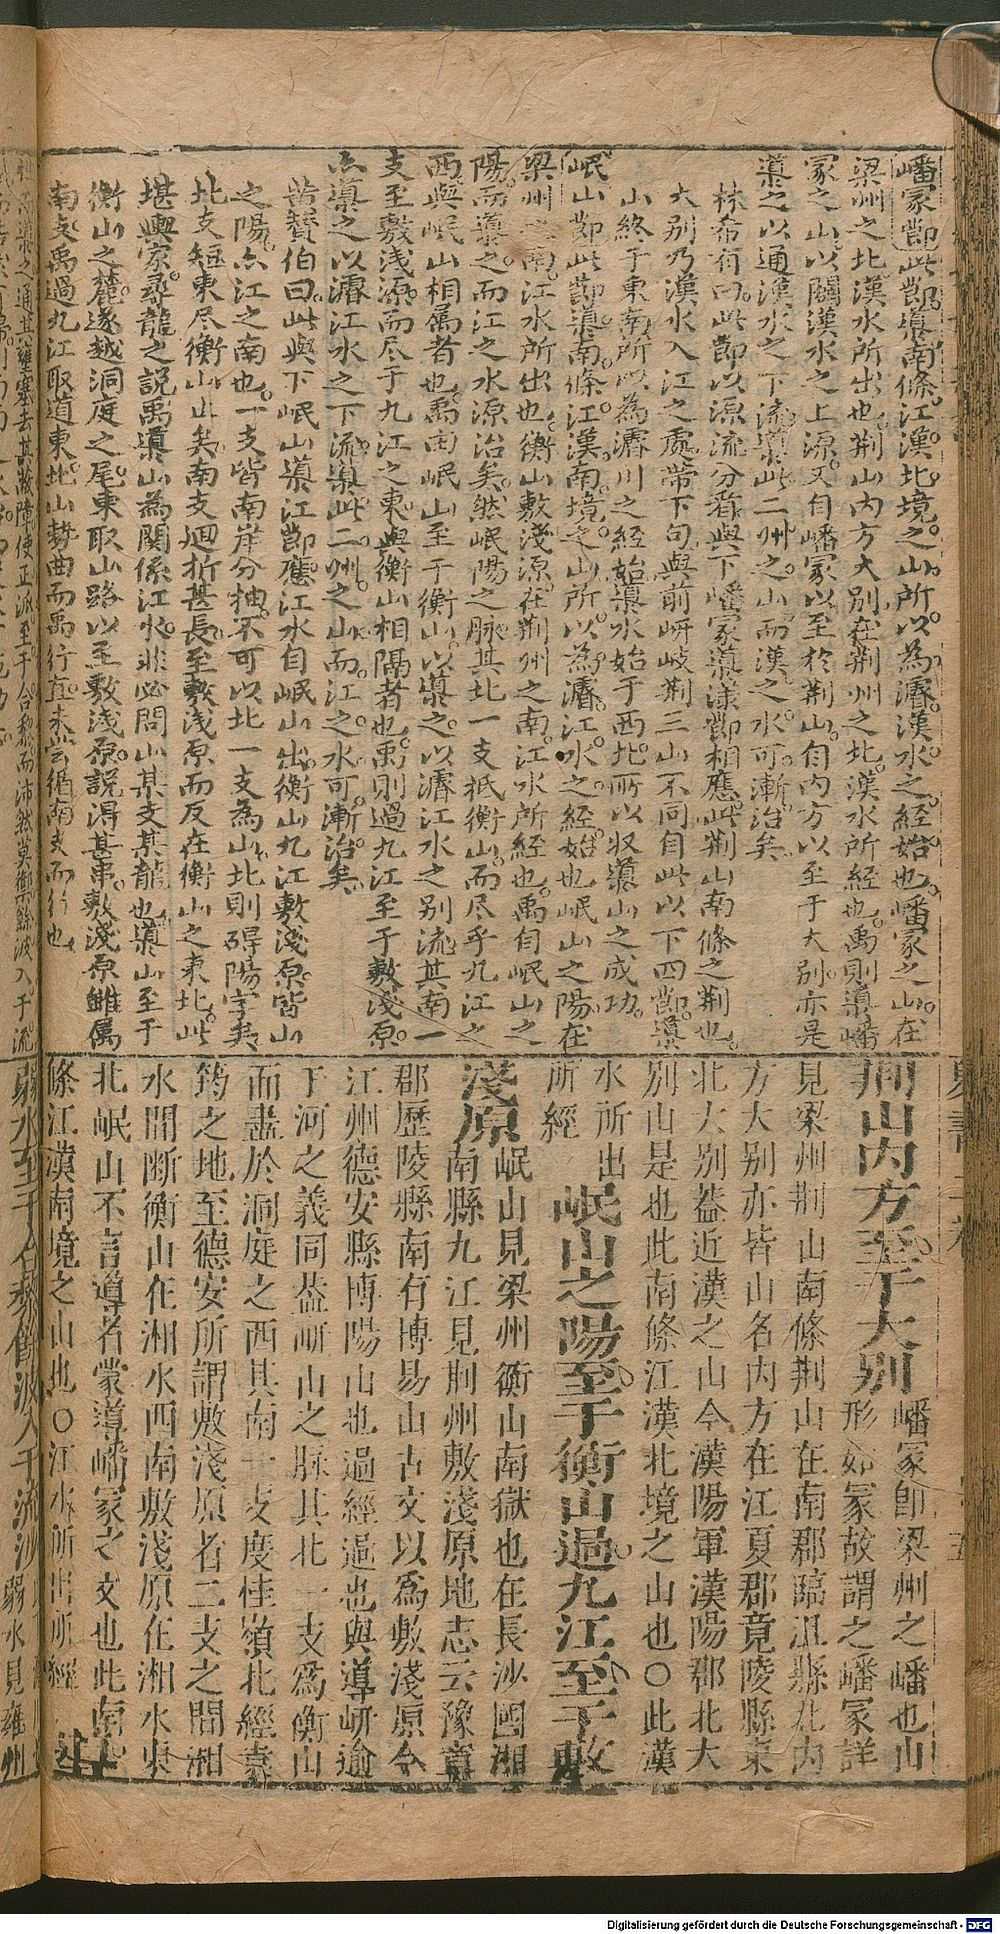 嶓冢節此節導南條江漢北境之山所以為濬漢水之經始也嶓冢之山在
梁州之北漢水所出也荊山內方大別在荊州之北漢水所經也禹則導嶓
冢之山以闢漢水之上源又自嶓冢以至於荊山自內方以至于大別亦是
導之以通漢水之下流導此二州之山而漢之水可漸治矣
林希有曰此節以源流分看與下嶓冢導漾節相應此荊山南條之荊也
大別乃漢水入江之處帶下句與前岍岐荊三山不同自此以下四節導
山終于東南所以為濬川之經始導水始于西北所以収導山之成功
岷山節此節導南條江漢南境之山所以為濬江水之經始也岷山之陽在
梁州之南江水所出也衡山敷淺源在荊州之南江水所經也禹自岷山之
陽而導之而江之水源治矣然岷陽之脉其北一支抵衡山而尽乎九江之
西與岷山相屬者也禹南岷山至于衡山以導之以濬江水之別流其南一
支至敷淺源而尽于九江之東與衡山相隔者也禹則過九江至于敷淺原
亦導之以濬江水之下流導此二州之山而江之水可漸治矣
昔贊伯曰此與下岷山導江節應江水自岷山出衡山九江敷淺原皆山
之陽亦江之南也一支皆南岸分抽不可以北一支為山北則碍陽字矣
北支短東尽衡山止矣南支迴折甚長至敷淺原而反在衡山之東北此
堪輿家尋龍之説禹導山為關係江水非必問山某支某龍也導山至于
衡山之麓遂越洞庭之尾東取山路以至敷淺原説得甚串敷淺原雖屬
南支禹過九江取道東北山勢曲而禹行直未嘗循南支而行也
荊山內方至于大別嶓冢卽梁州之嶓也山
形如冢故謂之嶓冢詳
見梁州荊山南條荊山在南郡臨沮縣北內
方大別亦皆山名內方在江夏郡竟陵縣東
北大別葢近漢之山今漢陽軍漢陽郡北大
別山是也此南條江漢北境之山也〇此漢
水所出
所經
岷山之陽至于衡山過九江至于敷
淺原岷山見梁州衡山南嶽也在長沙國湘
南縣九江見荊州敷淺原地志云豫章
郡歷陵縣南有博昜山古文以爲敷淺原今
江州德安縣博陽山也過經過也與導岍逾
于河之義同葢岍山之脉其北一支爲衡山
而盡於洞庭之西其南一支度桂嶺北經袁
筠之地至德安所謂敷淺原者二支之間湘
水間斷衡山在湘水西南敷淺原在湘水東
北岷山不言導者蒙導嶓冢之文也此南
條江漢南境之山也〇江水所出所經
弱水至于合黎餘波入于流沙弱水見雍州
Digitalisierung gefördert durch die Deutsche Forschungsgemeinschaft - DFG